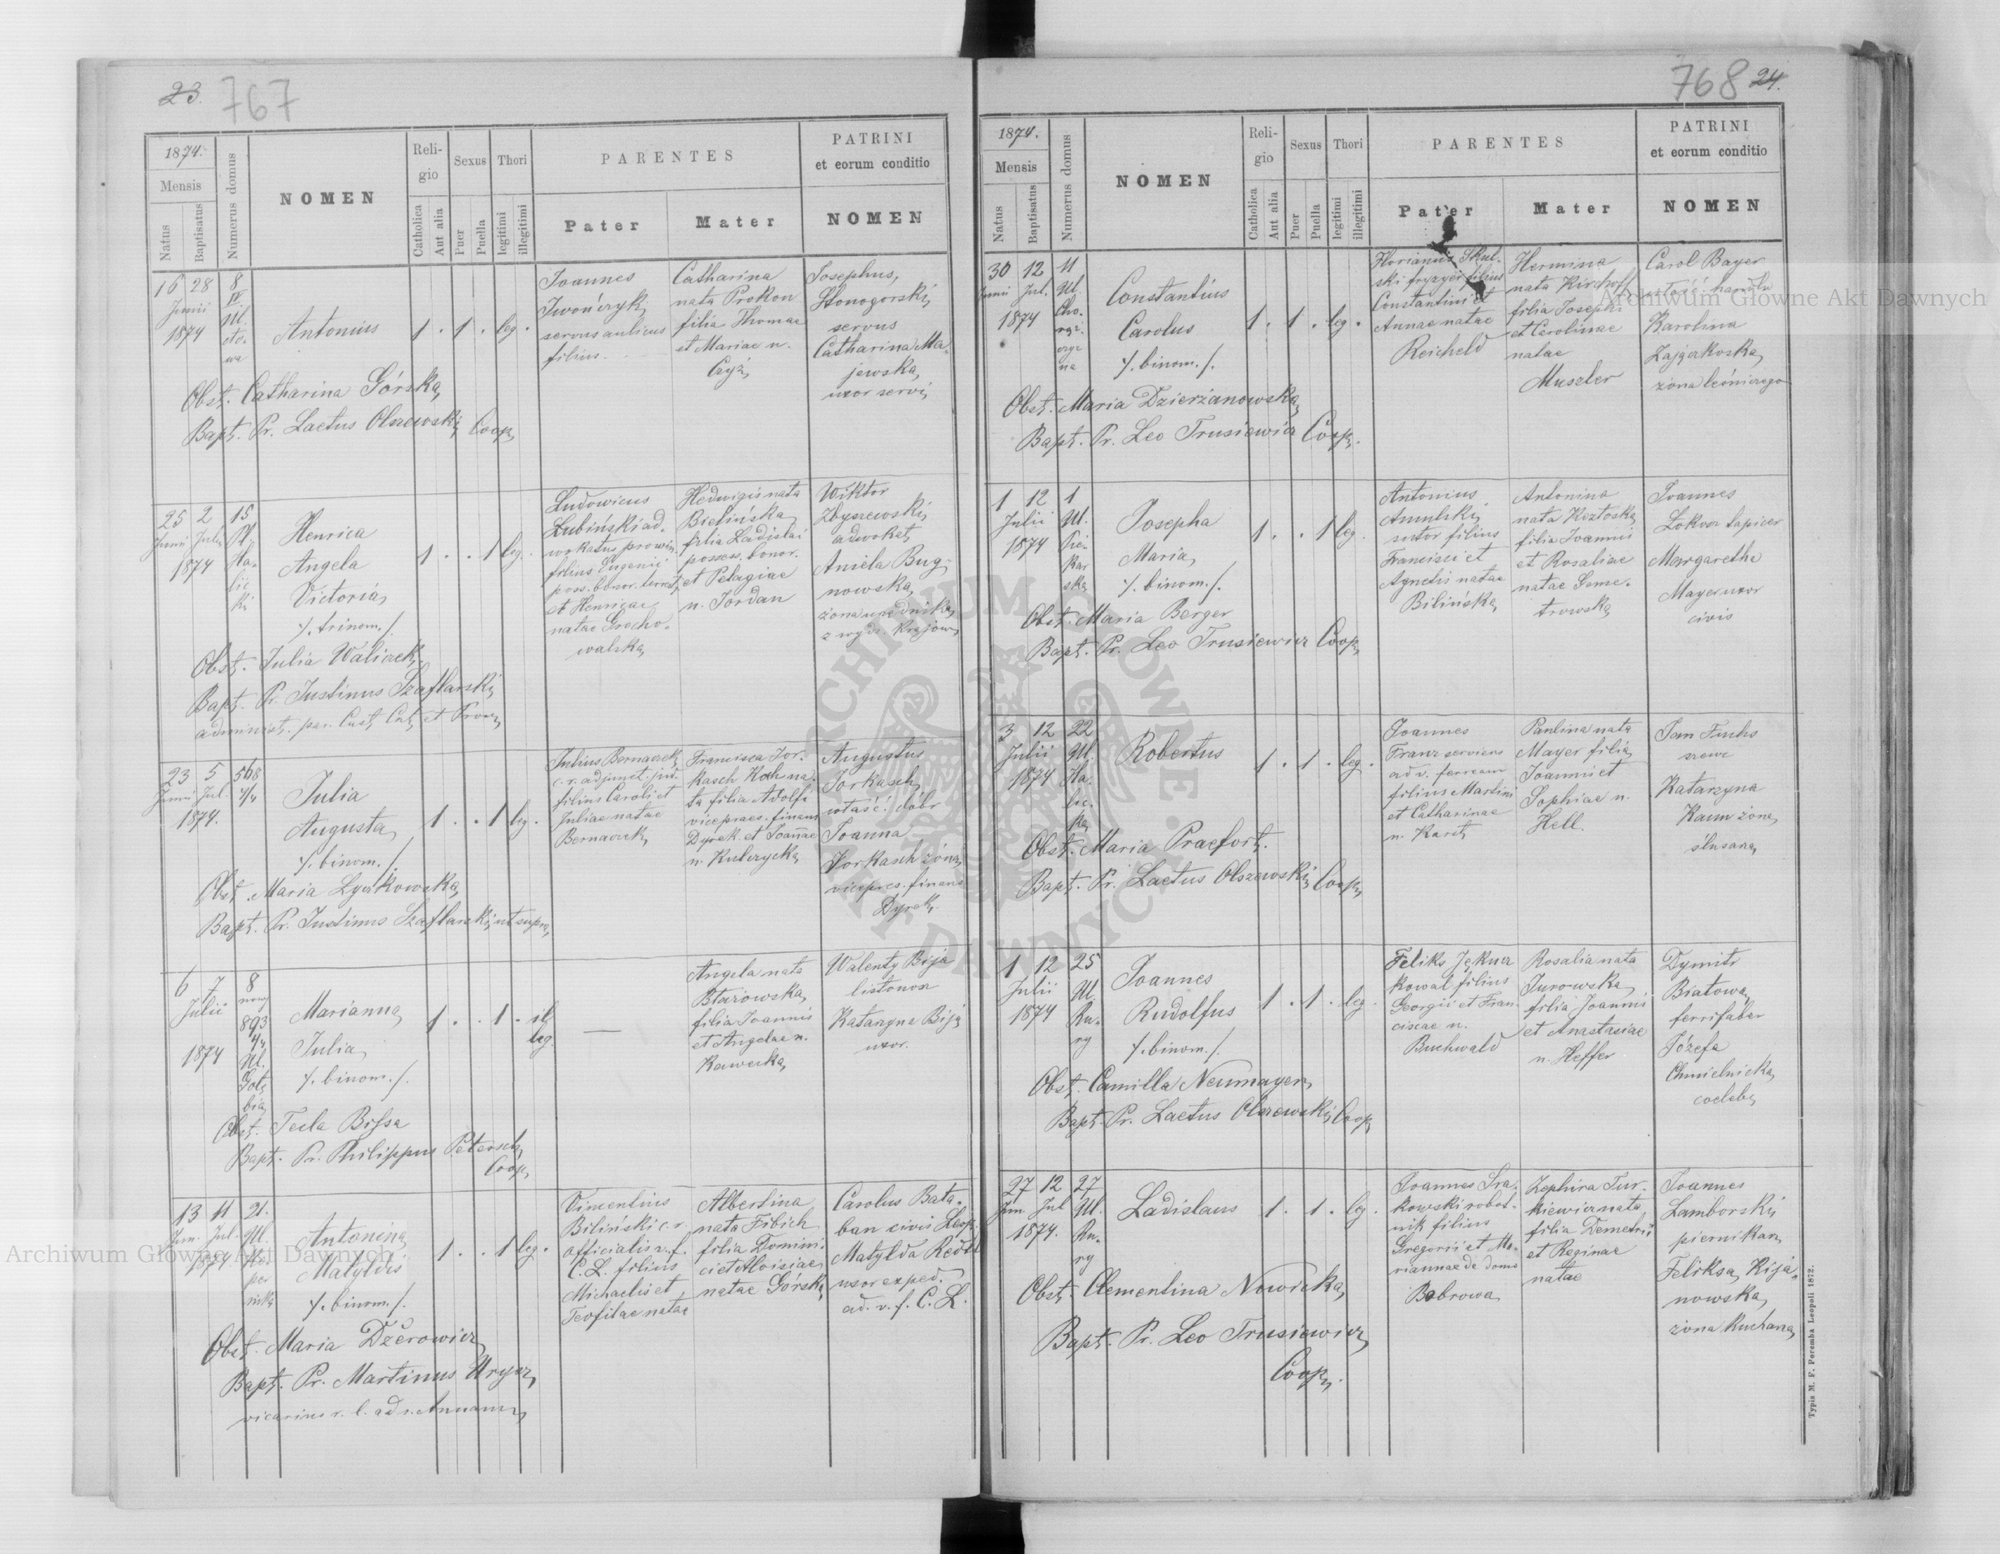 23. 767
1874.
Mensis
Natus
Baptisatus
Numerus domus
NOMEN
Religio
Catholica
Aut alia
Sexus
Puer
Puella
Thori
legitimi
illegitimi
PARENTES
Pater
Mater
PATRINI
et eorum conditio
NOMEN
16 28 8
Junii
1874
Antonius
1 . 1 . leg .
Joannes
servus aulicus
filius
Catharina
nata Prokop
filia Thomae
et Mariae n.
Josephus
Stonogorski
servus
Catharina Ma-
jewska
uxor servi
Obst. Catharina Górska
Bapt. Pr. Laetus Olszewski Coop.
25 2 15
Junii Julii
1874
Henrica
Angela
Victoria
/. trinom./.
1 . . 1 leg.
Ludovicus
Łubiński ad-
filius Eugenii
et Henricae
natae Grocho-
walska
Hedwigis nata
Bielińska
filia Ladislai
possess. bonor.
et Pelagiae
n. Jordan
Wiktor
Zbyszewski
adwokat
Aniela Bug-
nowska
żona urzędnika
z wydz. krajow.
Obst. Julia Waliczek
Bapt. Pr. Justinus Szaflarski
administ. par.
23 5 568
Junii Jul. 4/4
1874.
Julia
Augusta
/. binom./.
1 . . 1 leg .
Julius Bernaczek
c. r. adjunct. jud.
filius Caroli et
Juliae natae
Bernaczek
Francisca Jor-
kasch Koch na-
ta filia Adolfi
vicepraes. finans
Dyrek. et Joannae
n. Kulczycka
Augustus
Jorkasch
właść. dóbr
Joanna
Jorkasch żona
viceprez. finans
Dyrek.
Obst. Maria Łyszkowska
Bapt. Pr. Justinus Szaflarski ut supra
6 7 8
Julii nowy
893
1874 4/4
Ul.
Marianna
Julia
/. binom./.
1 . . 1 . il
leg.
—
Angela nata
filia Joannis
et Angelae n.
Walenty Bija
listonosz
Katarzyna Bija
uxor.
Obst. Tecla Bissa
Bapt. Pr. Philippus Petersch
Coop.
13 11 21.
Jun. Jul. Ul.
1874
Antonina
Matyldis
/. binom./.
1 . . 1 leg .
Vincentius
Biliński c. r.
officialis v. f.
C. L. filius
Michaelis et
Teofilae natae
Albertina
nata Fibich
filia Domini-
ci et Aloisiae
natae Górska
Carolus Bata-
ban civis Leop.
Matylda Redtl
uxor exped.
ad. v. f. C. L.
Obst. Maria Dżerowicz
Bapt. Pr. Martinus
vicarius r. l. ad s. Annam
768 24.
1874.
Mensis
Natus
Baptisatus
Numerus domus
NOMEN
Religio
Catholica
Aut alia
Sexus
Puer
Puella
Thori
legitimi
illegitimi
PARENTES
Pater
Mater
PATRINI
et eorum conditio
NOMEN
30 12 11
Junii Jul. Ul.
1874
Constantius
Carolus
/. binom./.
1 . 1 . leg .
Florianus Skul-
ski fryzyer filius
Constantini et
Annae natae
Reicheld
Hermina
nata Kirchoff
filia Josephi
et Carolinae
natae
Muszler
Carol Bayer
Karolina
Zajączkoska
żona leśniczego
Obst. Maria Dzierżanowska
Bapt. Pr. Leo Trusiewicz Coop.
1 12 1
Julii Ul.
1874 Pie-
kar
ska
Josepha
Maria
/. binom./.
1 . . 1 leg.
Antonius
sutor filius
Francisci et
Agnetis natae
Bilińska
Antonina
nata Koztoska
filia Joannis
et Rosaliae
natae Geme-
trowska
Joannes
Lokvor tapicer
Margaretha
Mayer uxor
civis
Obst. Maria Berger
Bapt. Pr. Leo Trusiewicz Coop.
3 12 22
Julii Ul.
1874 Ha-
lic-
ka
Robertus
1 . 1 . leg.
Joannes
Franz serviens
ad v. ferream
filius Martini
et Catharinae
n. Karet
Paulina nata
Mayer filia
Joannis et
Sophiae n.
Hell.
Jan Fuchs
szewc
Katarzyna
Kaim żona
ślusarza
Obst. Maria Praefort.
Bapt. Pr. Laetus Olszewski Coop.
1 12 25
Julii Ul.
1874 Ru-
ry
Joannes
Rudolfus
/. binom./.
1 . 1 . leg .
Feliks Jękner
kowal filius
Georgii et Fran-
ciscae n.
Buchwald
Rosalia nata
Jurowska
filia Joannis
et Anastasiae
n. Heffer
Dymitr
Białowa
ferrifaber
Józefa
Chmielnicka
coelebs
Obst. Camilla Neumayer
Bapt. Pr. Laetus Olszewski Coop.
27 12 27
Jun. Jul Ul.
1874. Ru-
ry
Ladislaus
1 . 1 . leg .
Joannes Sra-
kowski robot-
nik filius
Gregorii et Ma-
riannae de domo
Bobrowa
Zephira Tur-
kiewicz nata
filia Demetrii
et Reginae
natae
Joannes
Lamborski
piernikarz
Feliksa Kija-
nowska
żona kucharza
Obst. Clementina Nowicka
Bapt. Pr. Leo Trusiewicz
Coop.
Typis M. F. Poremba Leopoli 1872.
Archiwum Główne Akt Dawnych
Archiwum Główne Akt Dawnych
ARCHIWUM GŁÓWNE AKT DAWNYCH